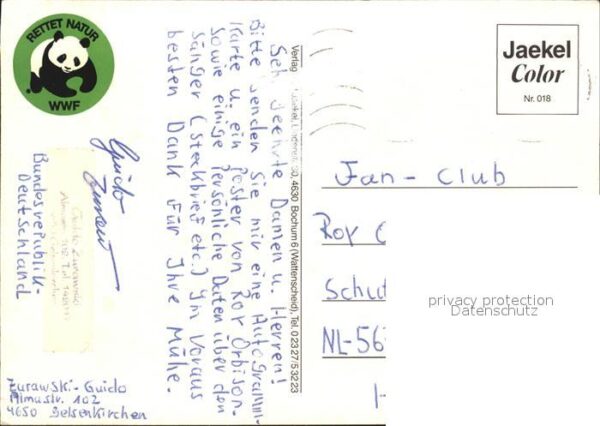 RETTET NATUR
WWF
Jaekel
Color
Nr. 018
Verlag Jaekel, 4630 Bochum 6 (Wattenscheid), Tel. 02327/53223
Seh. geehrte Damen u. Herren!
Bitte senden sie mir eine Autogramm-
Karte u. ein Poster von Roy Orbison.
sowie einige Persönliche Daten über den
Sänger (Steckbrief etc.) Im Voraus
besten Dank für Ihre Mühe.
Guido
Zurawski
Bundesrepublik-
Deutschland
Zurawski-Guido
Almastr. 102
4650 Gelsenkirchen
Fan-Club
Roy
Schu
NL-56
privacy protection
Datenschutz